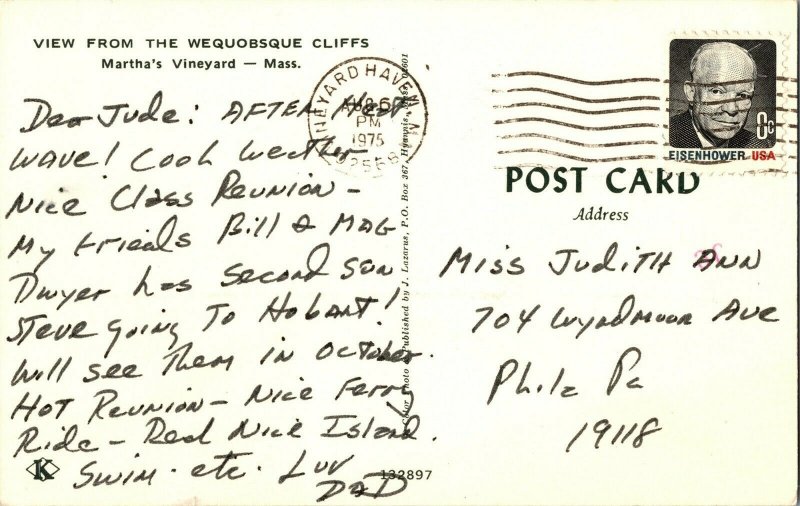 VIEW FROM THE WEQUOBSQUE CLIFFS
Martha's Vineyard — Mass.
Dear Jude: AFTER Heat
WAVE! Cool Weather
Nice Class Reunion -
My friends Bill & MAG
Dwyer has second son
Steve going To Hobart!
Will see Them in October.
HOT Reunion - Nice Ferry
Ride - Real Nice Island.
Swim. etc. Luv
DAD
K
132897
Color Photo Published by J. Lazarus, P.O. Box 367, Hyannis, Mass. 02601
VINEYARD HAVEN, MA
AUG 6
PM
1975
02568
EISENHOWER USA
8c
POST CARD
Address
Miss Judith Ann
704 Wyndmoor Ave
Phila Pa
19118